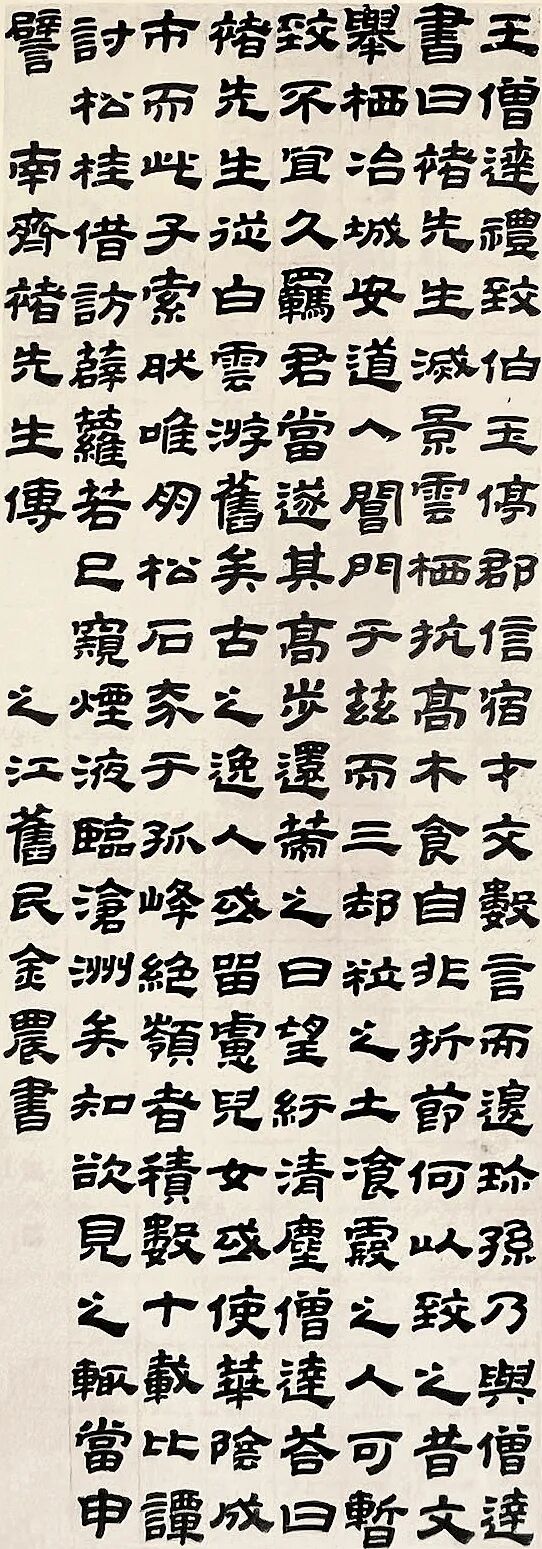 王僧達禮致伯玉停郡信宿才交數言而邊珎孫乃與僧達
書曰褚先生滅景雲栖抗高木食自非折節何以致之昔文
舉栖冶城安道入閶門于茲而三却粒之士飡霞之人可暫
致不宜久羈君當遂其高步還策之日望紆清塵僧達荅曰
褚先生從白雲游舊矣古之逸人或留慮兒女或使華陰成
市而此子索耿唯朋松石介于孤峰絕嶺者積數十載比譚
討松桂借訪薜蘿若已窺煙液臨滄洲矣知欲見之輒當申
譬 南齊褚先生傳 之江舊民金農書